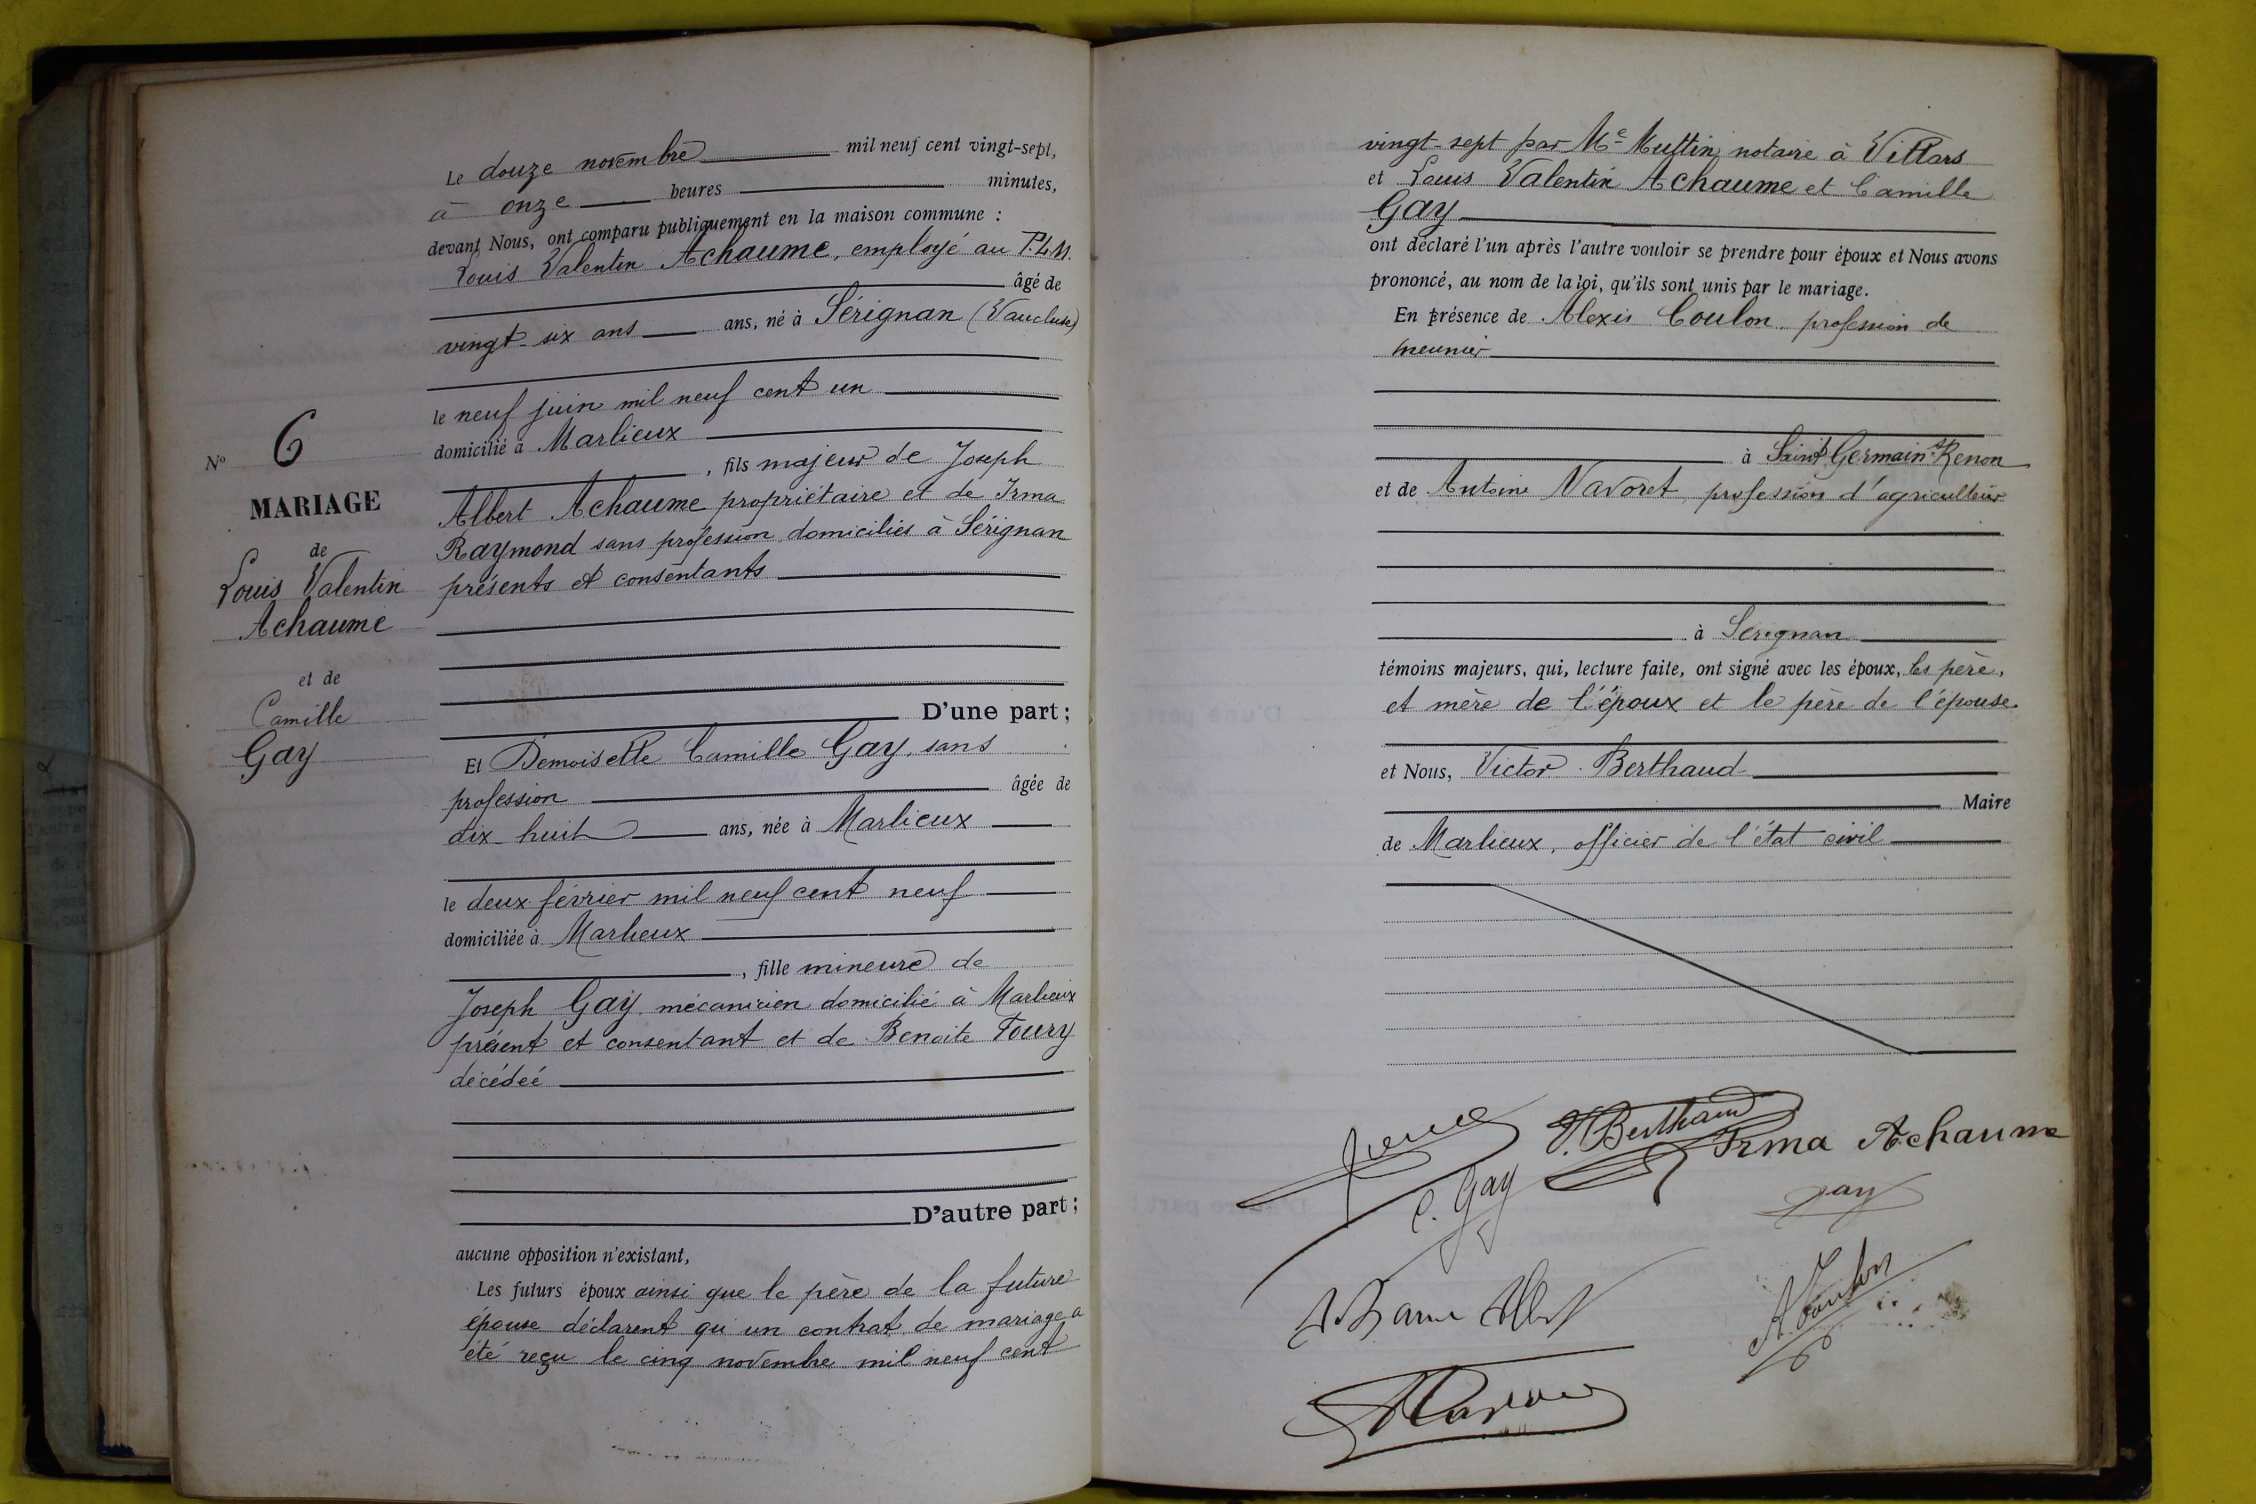 Le douze novembre mil neuf cent vingt-sept,
à onze heures minutes,
devant Nous, ont comparu publiquement en la maison commune :
Louis Valentin Achaume, employé au P.L.M.
âgé de
vingt-six ans ans, né à Sérignan (Vaucluse)
le neuf juin mil neuf cent un
domicilié à Marlieux
, fils majeur de Joseph
Albert Achaume propriétaire et de Irma
Raymond sans profession domiciliés à Sérignan
présents et consentants
D'une part ;
Et Demoiselle Camille Gay, sans
profession âgée de
dix-huit ans, née à Marlieux
le deux février mil neuf cent neuf
domiciliée à Marlieux
, fille mineure de
Joseph Gay mécanicien domicilié à Marlieux
présent et consentant et de Benoite Foury
décédée
D'autre part ;
aucune opposition n'existant,
Les futurs époux ainsi que le père de la future
épouse déclarent qu'un contrat de mariage a
été reçu le cinq novembre mil neuf cent
No 6
MARIAGE
de
Louis Valentin
Achaume
et de
Camille
Gay
vingt-sept par Me Muttin notaire à Villars
et Louis Valentin Achaume et Camille
Gay
ont déclaré l'un après l'autre vouloir se prendre pour époux et Nous avons
prononcé, au nom de la loi, qu'ils sont unis par le mariage.
En présence de Alexis Coulon profession de
meunier
à Saint Germain s/ Renon
et de Antoine Navoret, profession d'agriculteur
à Sérignan
témoins majeurs, qui, lecture faite, ont signé avec les époux, les père,
et mère de l'époux et le père de l'épouse
et Nous, Victor Berthaud
Maire
de Marlieux, officier de l'état civil
V. Berthaud
Irma Achaume
C. Gay
Gay
A. Coulon